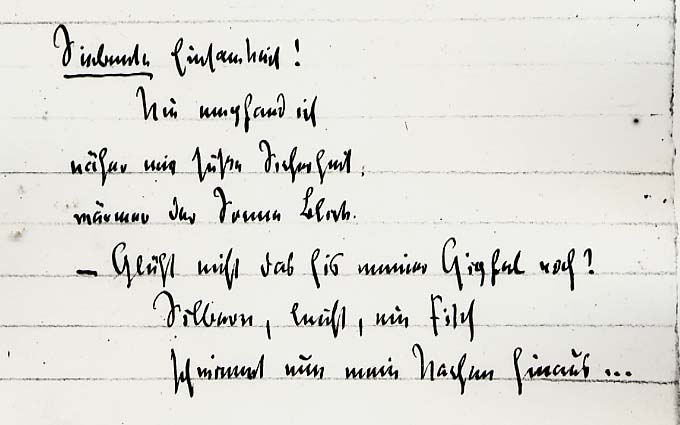 Siebente Einsamkeit!
Nie empfand ich
näher mir süße Sicherheit,
wärmer der Sonne Blick.
— Glüht nicht das Eis meiner Gipfel noch?
Silbern, leicht, ein Fisch
schwimmt nun mein Nachen hinaus ...